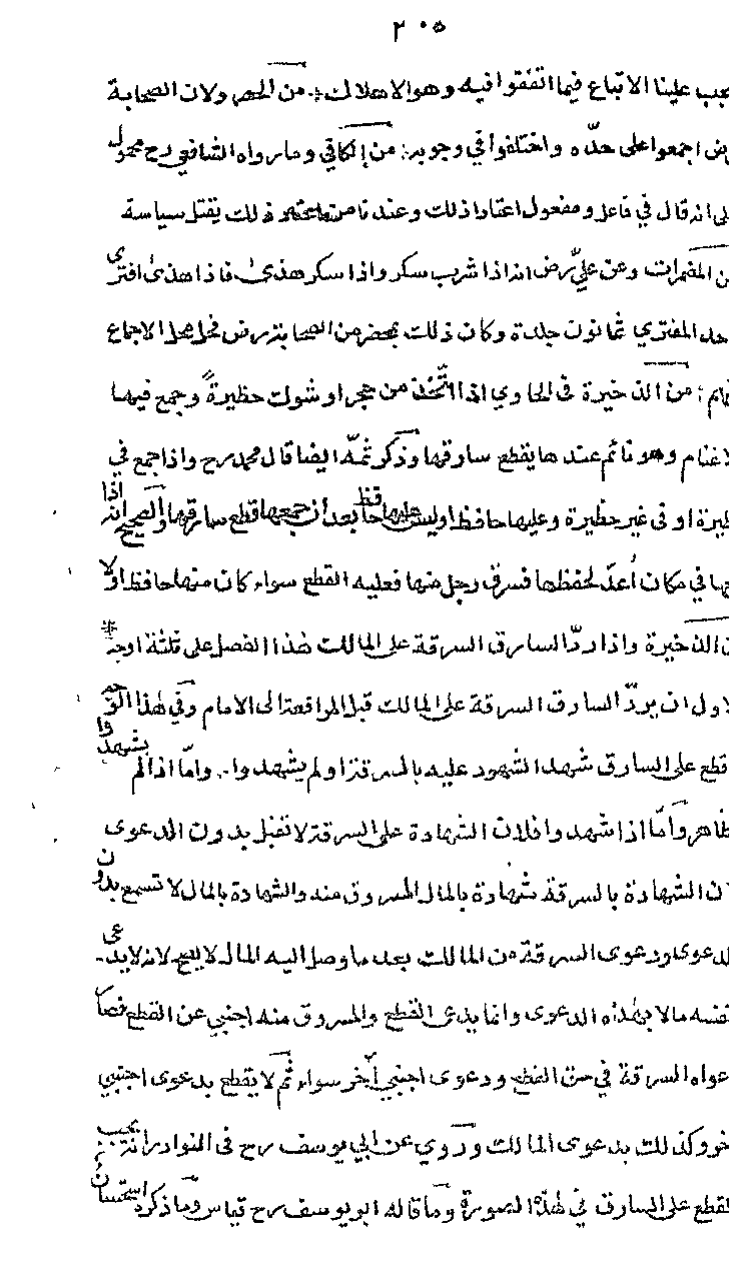 ٢٠٥
يجب علينا الاتباع فيما اتفقوا فيه وهو الاهلاك من الحصر ولان الصحابة
رض اجمعوا على حدّه واختلفوا في وجوبه من الكافي وما رواه الشافعي رح محمول
على انه قال في فاعل ومفعول اعتادا ذلك وعندنا من ذلك يقتل سياسة
من المضمرات وعن عليّ رض انه اذا شرب سكر واذا سكر هذى فاذا هذى افترى
وحد المفتري ثمانون جلدة وكان ذلك بمحضر من الصحابة رض فحل محل الاجماع
منهم من الذخيرة في الحاوي اذا اتّخذ من حجر او شوك حظيرةً وجمع فيها
الاغنام وهو نائم عندها يقطع سارقها وذكر ثمّه ايضا قال محمد رح واذا جمع في
حظيرة او في غير حظيرة وعليها حافظ او ليس عليها حافظ بعد ان جمعها قطع سارقها والصحيح انه اذا
جمعها في مكان اُعدّ لحفظها فسرق رجل منها فعليه القطع سواء كان منها حافظ اولا
من الذخيرة واذا ردّ السارق السرقة على المالك هذا الفصل على ثلثة اوجه
الاول ان يردّ السارق السرقة على المالك قبل المرافعة الى الامام وفي هذا الوجه
لا قطع على السارق شهد الشهود عليه بالسرقة او لم يشهدوا وامّا اذا لم يشهدوا
فظاهر وامّا اذا شهدوا فلان الشهادة على السرقة لا تقبل بدون الدعوى
لان الشهادة بالسرقة شهادة بالمال المسروق منه والشهادة بالمال لا تسمع بدون
الدعوى ودعوى السرقة من المالك بعد ما وصل اليه المال لا يصح لانه لا يدعى
لنفسه مالا بهذه الدعوى وانما يدعى القطع والمسروق منه اجنبي عن القطع فصار
دعواه السرقة في حق القطع ودعوى اجنبي آخر سواء ثم لا يقطع بدعوى اجنبي
آخر وكذلك بدعوى المالك وروي عن ابي يوسف رح في النوادر انه يجب
القطع على السارق في هذه الصورة وما قاله ابو يوسف رح قياس وما ذكر استحسان